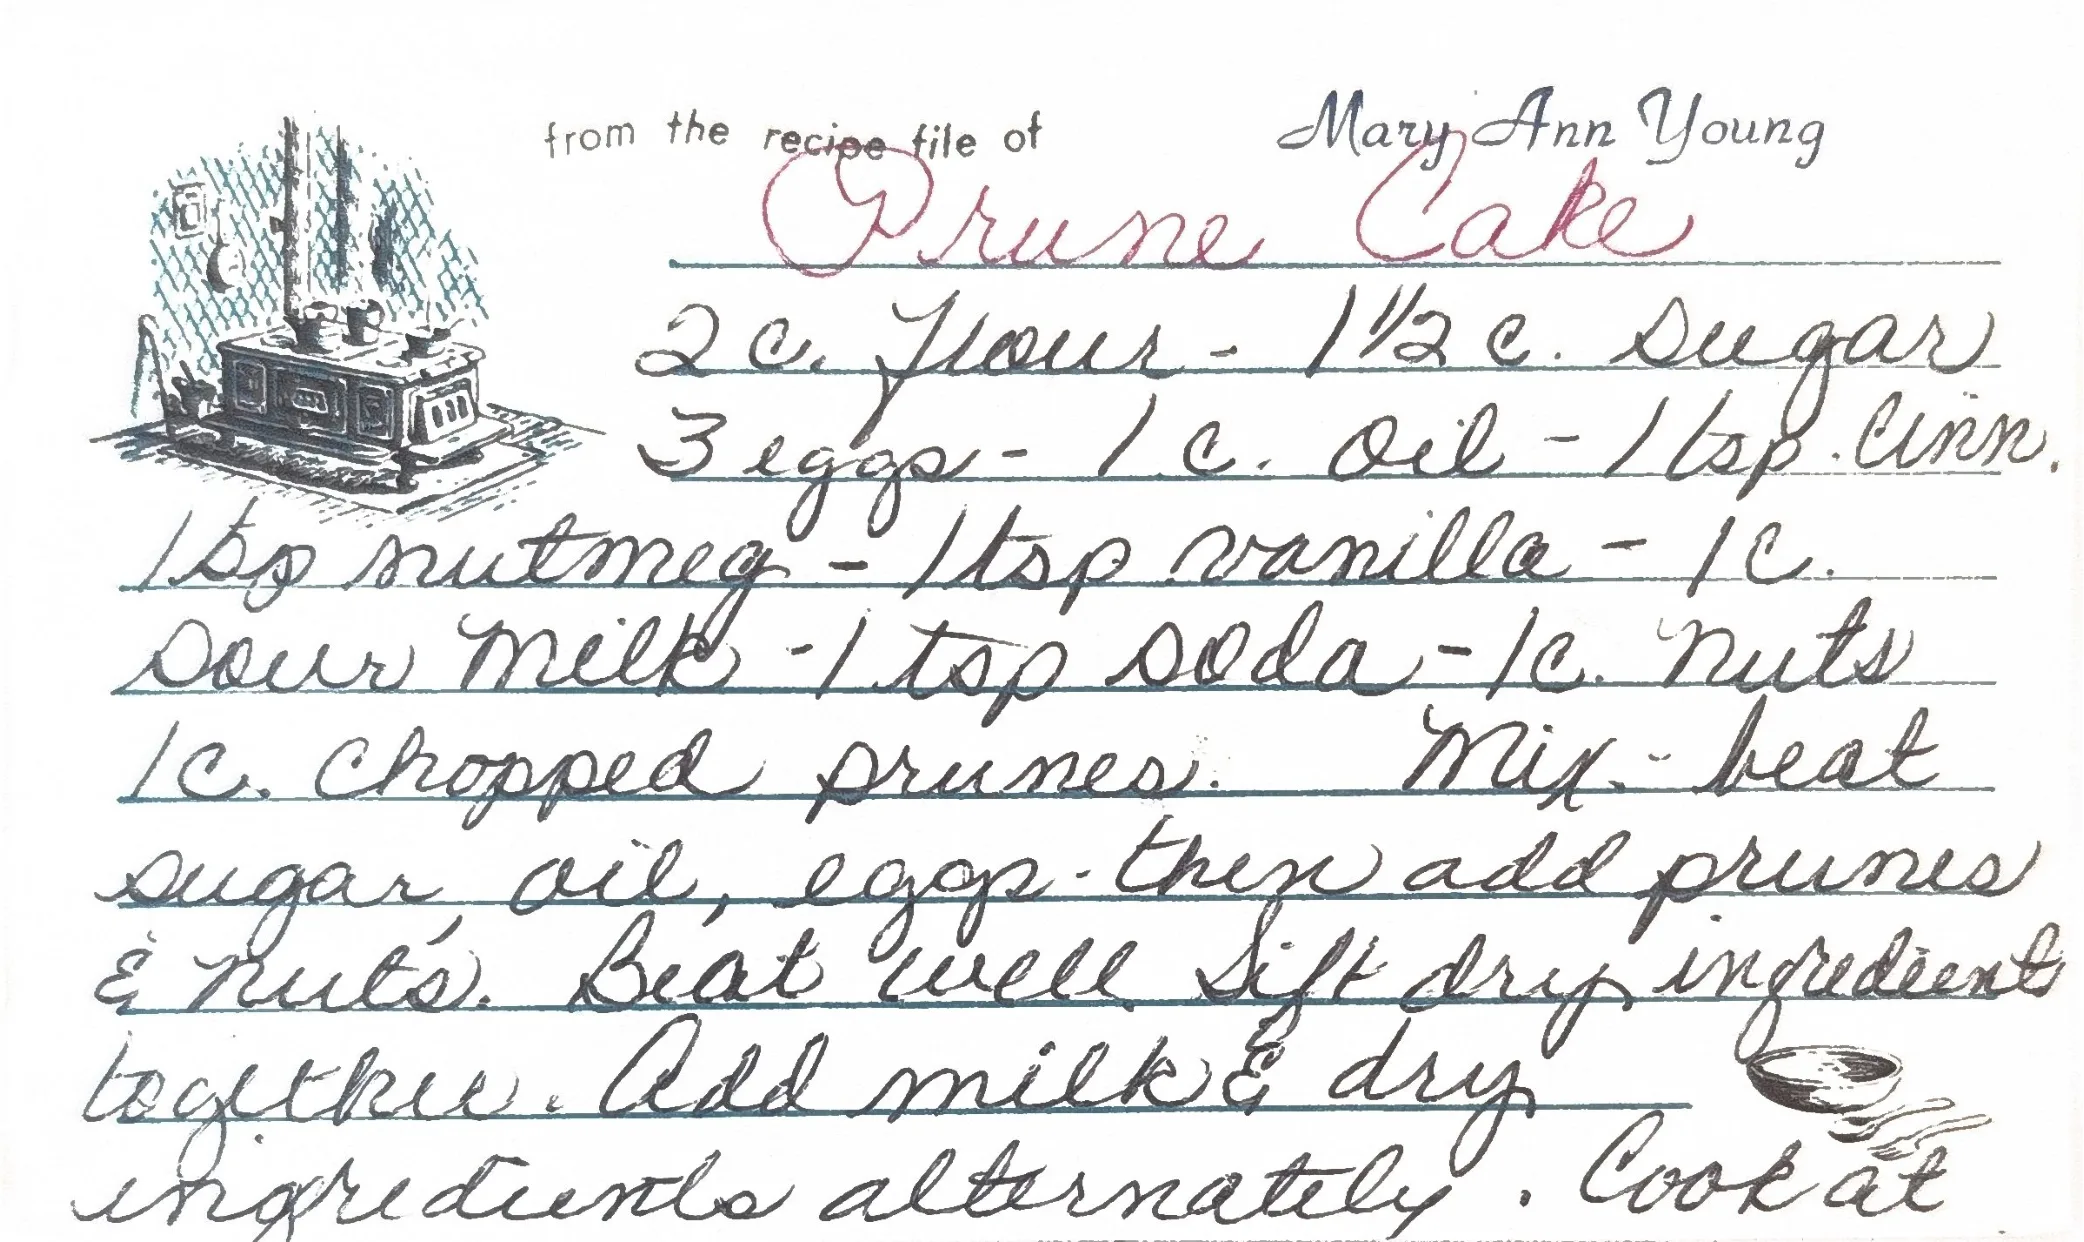 from the recipe file of Mary Ann Young
Prune Cake
2 c. flour - 1 1/2 c. sugar
3 eggs - 1 c. oil - 1 tsp. Cinn.
1 tsp nutmeg - 1 tsp vanilla - 1 c.
sour milk - 1 tsp soda - 1 c. nuts
1 c. chopped prunes. Mix - beat
sugar, oil, eggs - then add prunes
& nuts. Beat well. Sift dry ingredients
together. Add milk & dry
ingredients alternately. Cook at